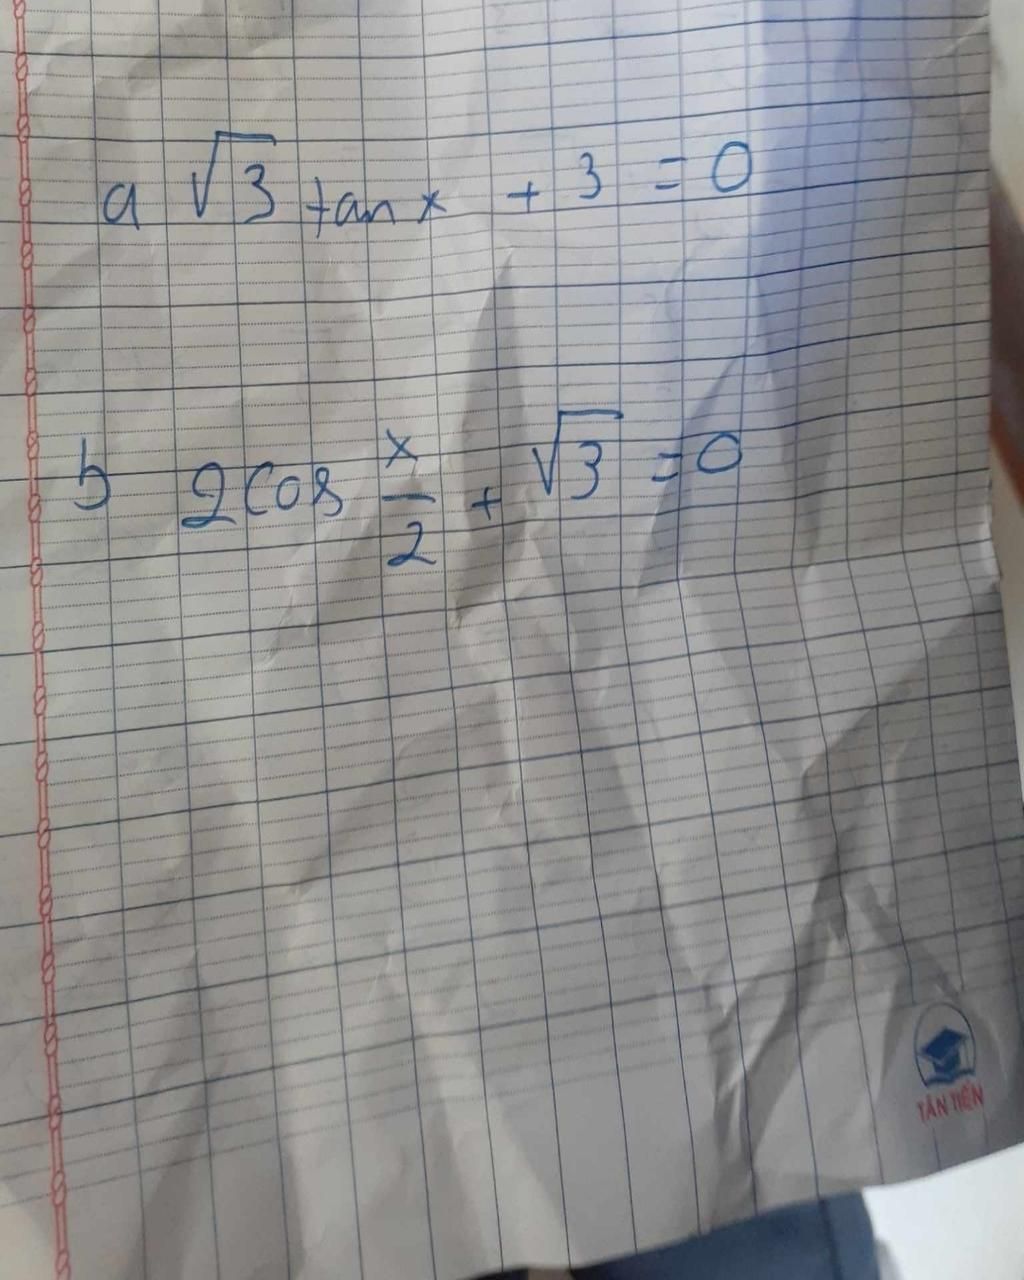 a √3 tan x + 3 = 0
b 2cos x/2 + √3 = 0
TÂN TIẾN